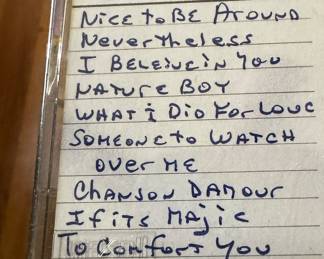 NiCE to BE AROUND
Nevertheless
I BELEiVE iN YOU
NATURE BOY
WHAT i DiD FOR LOVE
SOMEONE to WATCH
OVER ME
CHANSON DAMOUR
If iTS MAjiC
TO COMFORT YOU